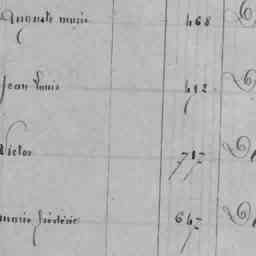 Auguste marie 468
Jean Louis 412
Victor 717
marie frédéric 647